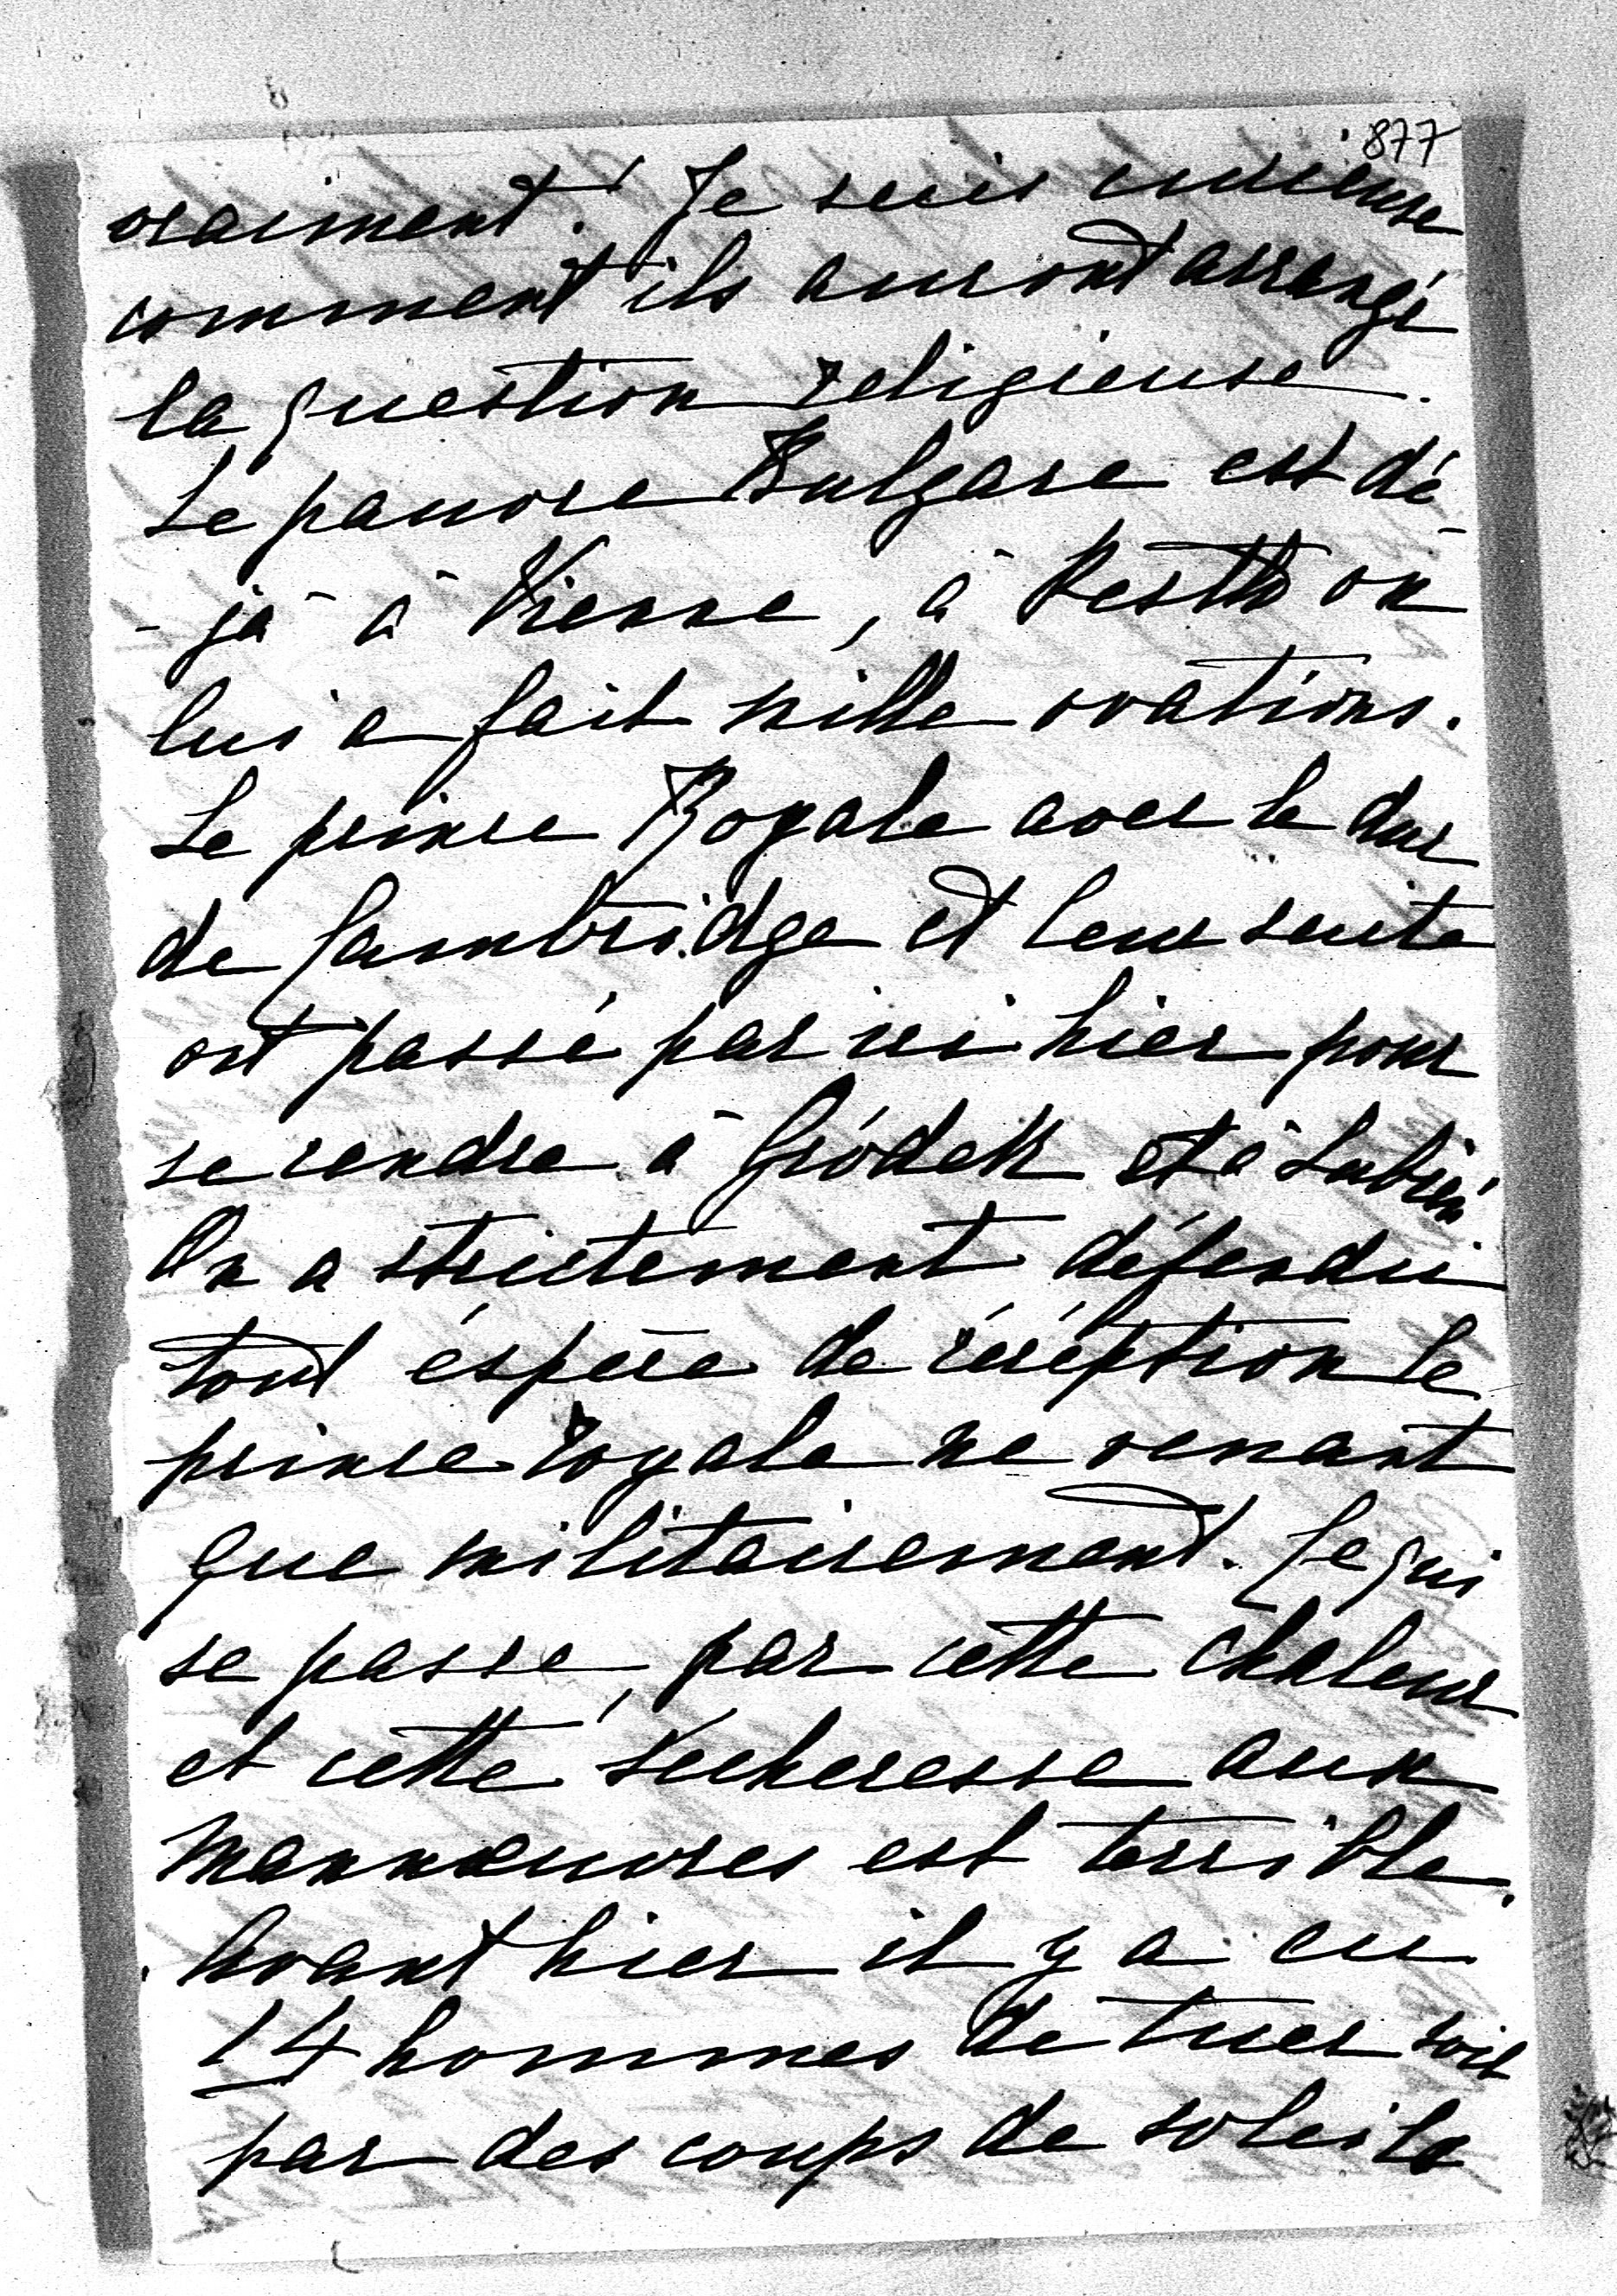 877
vraiment! Je suis curieuse
comment ils auront arrangé
la question religieuse.
Le pauvre Bulgare est dé-
-jà à Vienne, à Pesth on
lui a fait mille ovations.
Le prince Royale avec le duc
de Cambridge et leur suite
ont passé par ici hier pour
se rendre à Gródek et à Lubień
On a strictement défendu
tout éspèce de récéption le
prince royale ne venant
que militairement. Ce qui
se passe, par cette chaleur
et cette sécheresse aux
mannœuvres est terrible.
Avant hier il y a eu
14 hommes de tuer soit
par des coups de soleils